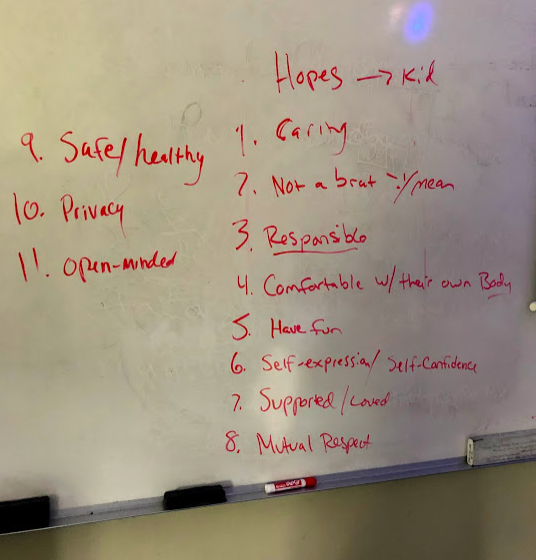 Hopes → Kid
1. Caring
2. Not a brat :/ mean
3. Responsible
4. Comfortable w/ their own Body
5. Have fun
6. Self-expression/ Self-Confidence
7. Supported/Loved
8. Mutual Respect
9. Safe/healthy
10. Privacy
11. open-minded